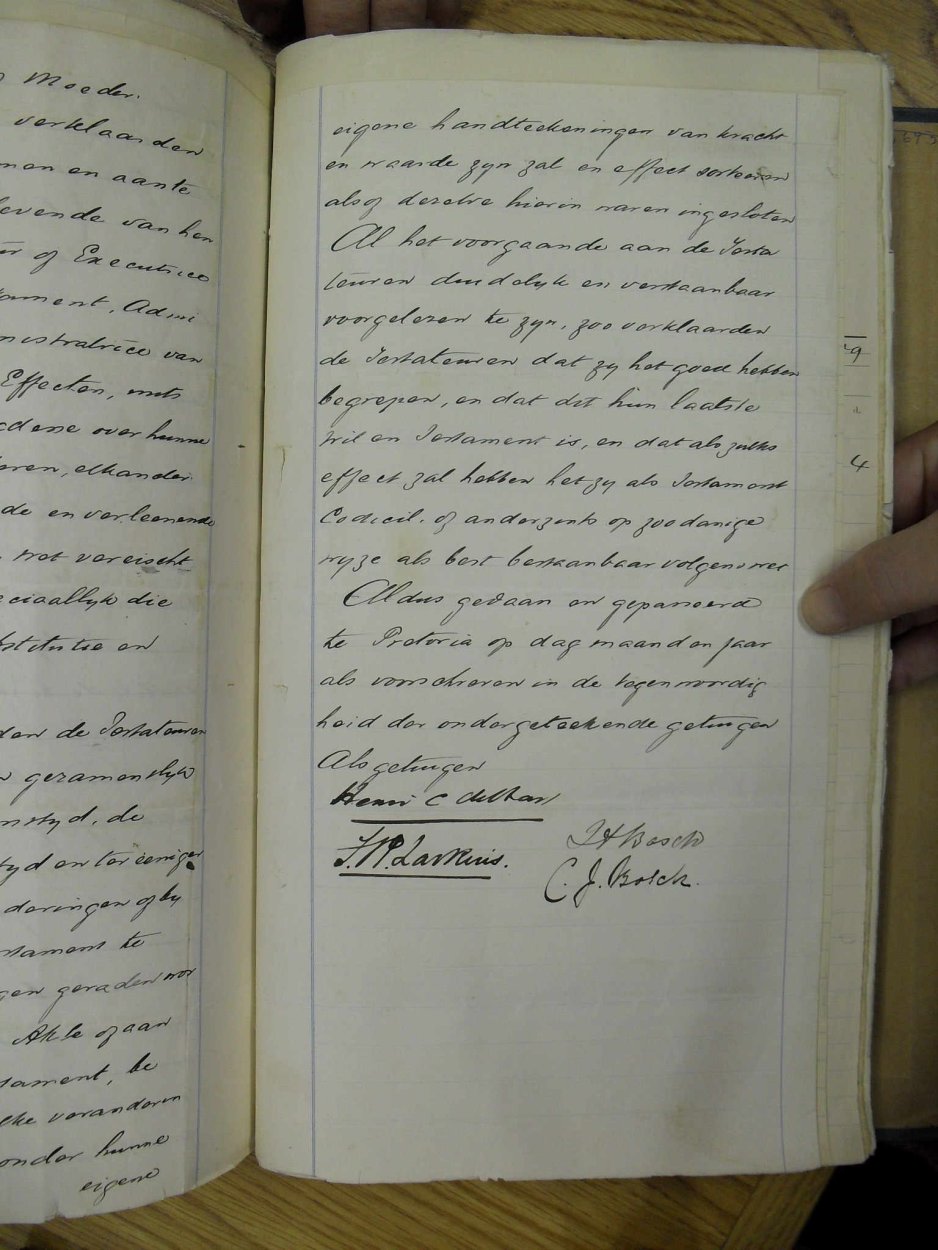 Moeder.
verklaarden
men en aante
levende van hen
ur of Executrice
tament, Admi
nistratrice van
Effecten, mits
edene over hunne
eren, elkander
de en verleenende
met vereischt
eciaallyk die
bstitutie en
den de Testateuren
gezamenlyk
nstyd, de
tyd en ter eeniger
deringen of by
stament te
gen geraden wor
Akte of aan
stament, be
elke veranderin
onder hunne
eigene
eigene handteekeningen van kracht
en waarde zyn zal en effect sorteeren
alsof dezelve hierin waren ingesloten
Al het voorgaande aan de Testa
teuren duidelyk en verstaanbaar
voorgelezen te zyn, zoo verklaarden
de Testateuren dat zy het goed hebben
begrepen, en dat dit hun laatste
wil en Testament is, en dat als zulks
effect zal hebben het zy als Testament
Codicil, of anderzints op zoodanige
wyze als best bestaanbaar volgens wet
Aldus gedaan en gepasseerd
te Pretoria op dag maand en jaar
als voorschreven in de tegenwoordig
heid der ondergeteekende getuigen
Als getuigen
Henri C
J H Bosch
C. J. Bosch.
4